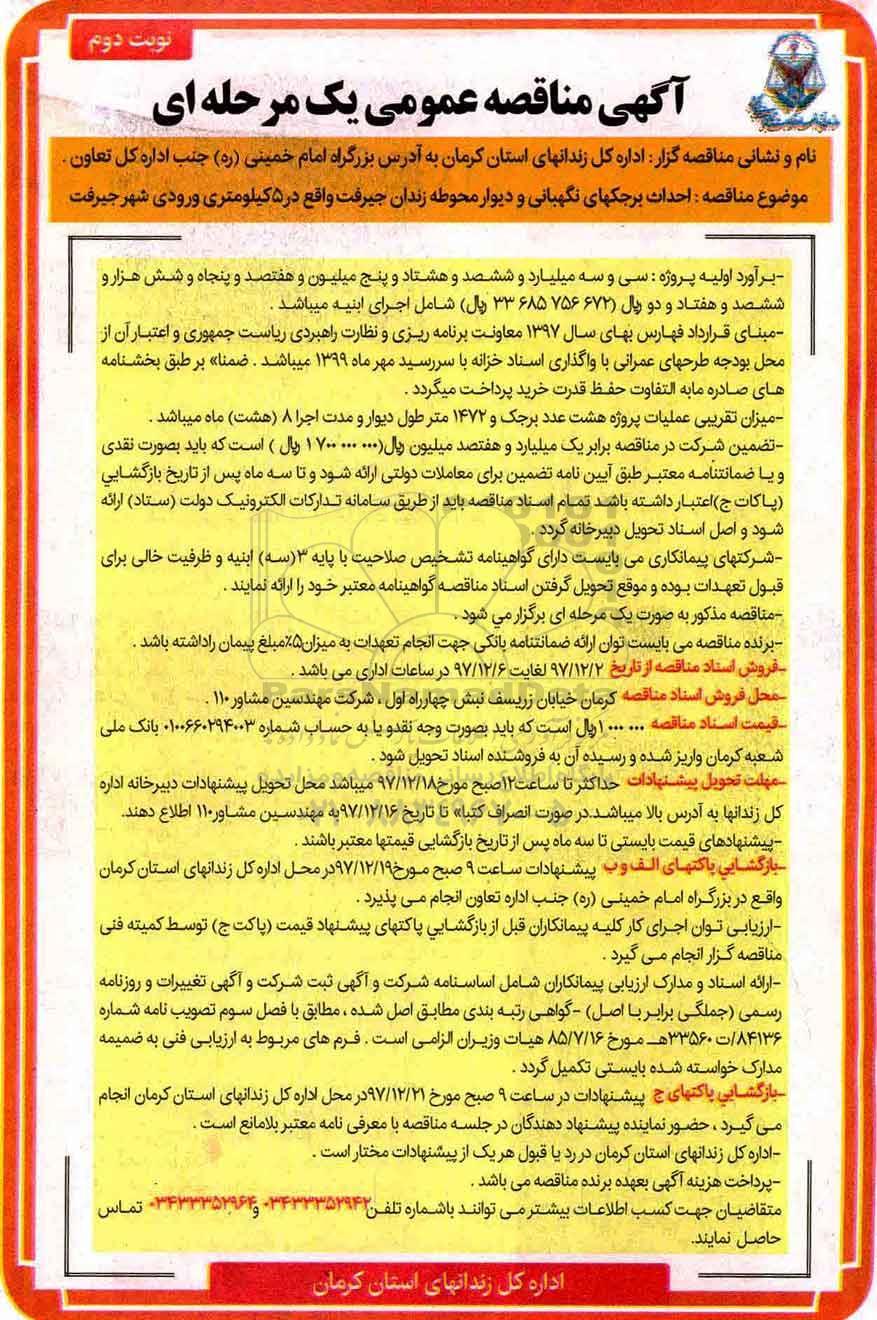 نوبت دوم
آگهی مناقصه عمومی یک مرحله ای
نام و نشانی مناقصه گزار : اداره کل زندانهای استان کرمان به آدرس بزرگراه امام خمینی (ره) جنب اداره کل تعاون .
موضوع مناقصه : احداث برجکهای نگهبانی و دیوار محوطه زندان جیرفت واقع در ۵کیلومتری ورودی شهر جیرفت
-برآورد اولیه پروژه : سی و سه میلیارد و ششصد و هشتاد و پنج میلیون و هفتصد و پنجاه و شش هزار و
ششصد و هفتاد و دو ریال (۶۷۲ ۷۵۶ ۶۸۵ ۳۳ ریال) شامل اجرای ابنیه میباشد .
-مبنای قرارداد فهارس بهای سال ۱۳۹۷ معاونت برنامه ریزی و نظارت راهبردی ریاست جمهوری و اعتبار آن از
محل بودجه طرحهای عمرانی با واگذاری اسناد خزانه با سررسید مهر ماه ۱۳۹۹ میباشد . ضمنا» بر طبق بخشنامه
های صادره مابه التفاوت حفظ قدرت خرید پرداخت میگردد .
-میزان تقریبی عملیات پروژه هشت عدد برجک و ۱۴۷۲ متر طول دیوار و مدت اجرا ۸ (هشت) ماه میباشد .
-تضمین شرکت در مناقصه برابر یک میلیارد و هفتصد میلیون ریال(۰۰۰ ۰۰۰ ۷۰۰ ۱ ریال ) است که باید بصورت نقدی
و یا ضمانتنامه معتبر طبق آیین نامه تضمین برای معاملات دولتی ارائه شود و تا سه ماه پس از تاریخ بازگشایی
(پاکات ج)اعتبار داشته باشد تمام اسناد مناقصه باید از طریق سامانه تدارکات الکترونیک دولت (ستاد) ارائه
شود و اصل اسناد تحویل دبیرخانه گردد .
-شرکتهای پیمانکاری می بایست دارای گواهینامه تشخیص صلاحیت با پایه ۳(سه) ابنیه و ظرفیت خالی برای
قبول تعهدات بوده و موقع تحویل گرفتن اسناد مناقصه گواهینامه معتبر خود را ارائه نمایند .
-مناقصه مذکور به صورت یک مرحله ای برگزار می شود .
-برنده مناقصه می بایست توان ارائه ضمانتنامه بانکی جهت انجام تعهدات به میزان۵٪مبلغ پیمان راداشته باشد .
-فروش اسناد مناقصه از تاریخ ۹۷/۱۲/۲ لغایت ۹۷/۱۲/۶ در ساعات اداری می باشد .
-محل فروش اسناد مناقصه کرمان خیابان زریسف نبش چهارراه اول ، شرکت مهندسین مشاور ۱۱۰ .
-قیمت اسناد مناقصه ۰۰۰ ۰۰۰ ۱ریال است که باید بصورت وجه نقدو یا به حساب شماره ۰۱۰۰۶۶۰۲۹۴۰۰۳ بانک ملی
شعبه کرمان واریز شده و رسیده آن به فروشنده اسناد تحویل شود .
-مهلت تحویل پیشنهادات حداکثر تا ساعت۱۲صبح مورخ۹۷/۱۲/۱۸ میباشد محل تحویل پیشنهادات دبیرخانه اداره
کل زندانها به آدرس بالا میباشد.در صورت انصراف کتبا» تا تاریخ ۹۷/۱۲/۱۶به مهندسین مشاور۱۱۰ اطلاع دهند.
-پیشنهادهای قیمت بایستی تا سه ماه پس از تاریخ بازگشایی قیمتها معتبر باشند .
-بازگشایی پاکتهای الف و ب پیشنهادات ساعت ۹ صبح مورخ۹۷/۱۲/۱۹در محل اداره کل زندانهای استان کرمان
واقع در بزرگراه امام خمینی (ره) جنب اداره تعاون انجام می پذیرد .
-ارزیابی توان اجرای کار کلیه پیمانکاران قبل از بازگشایی پاکتهای پیشنهاد قیمت (پاکت ج) توسط کمیته فنی
مناقصه گزار انجام می گیرد .
-ارائه اسناد و مدارک ارزیابی پیمانکاران شامل اساسنامه شرکت و آگهی ثبت شرکت و آگهی تغییرات و روزنامه
رسمی (جملگی برابر با اصل) -گواهی رتبه بندی مطابق اصل شده ، مطابق با فصل سوم تصویب نامه شماره
۸۴۱۳۶/ت ۳۳۵۶۰هـ مورخ ۸۵/۷/۱۶ هیات وزیران الزامی است . فرم های مربوط به ارزیابی فنی به ضمیمه
مدارک خواسته شده بایستی تکمیل گردد .
-بازگشایی پاکتهای ج پیشنهادات در ساعت ۹ صبح مورخ ۹۷/۱۲/۲۱در محل اداره کل زندانهای استان کرمان انجام
می گیرد ، حضور نماینده پیشنهاد دهندگان در جلسه مناقصه با معرفی نامه معتبر بلامانع است .
-اداره کل زندانهای استان کرمان در رد یا قبول هر یک از پیشنهادات مختار است .
-پرداخت هزینه آگهی بعهده برنده مناقصه می باشد .
متقاضیان جهت کسب اطلاعات بیشتر می توانند باشماره تلفن۰۳۴۳۳۳۵۲۹۴۲ و۰۳۴۳۳۳۵۲۹۶۴ تماس
حاصل نمایند.
اداره کل زندانهای استان کرمان